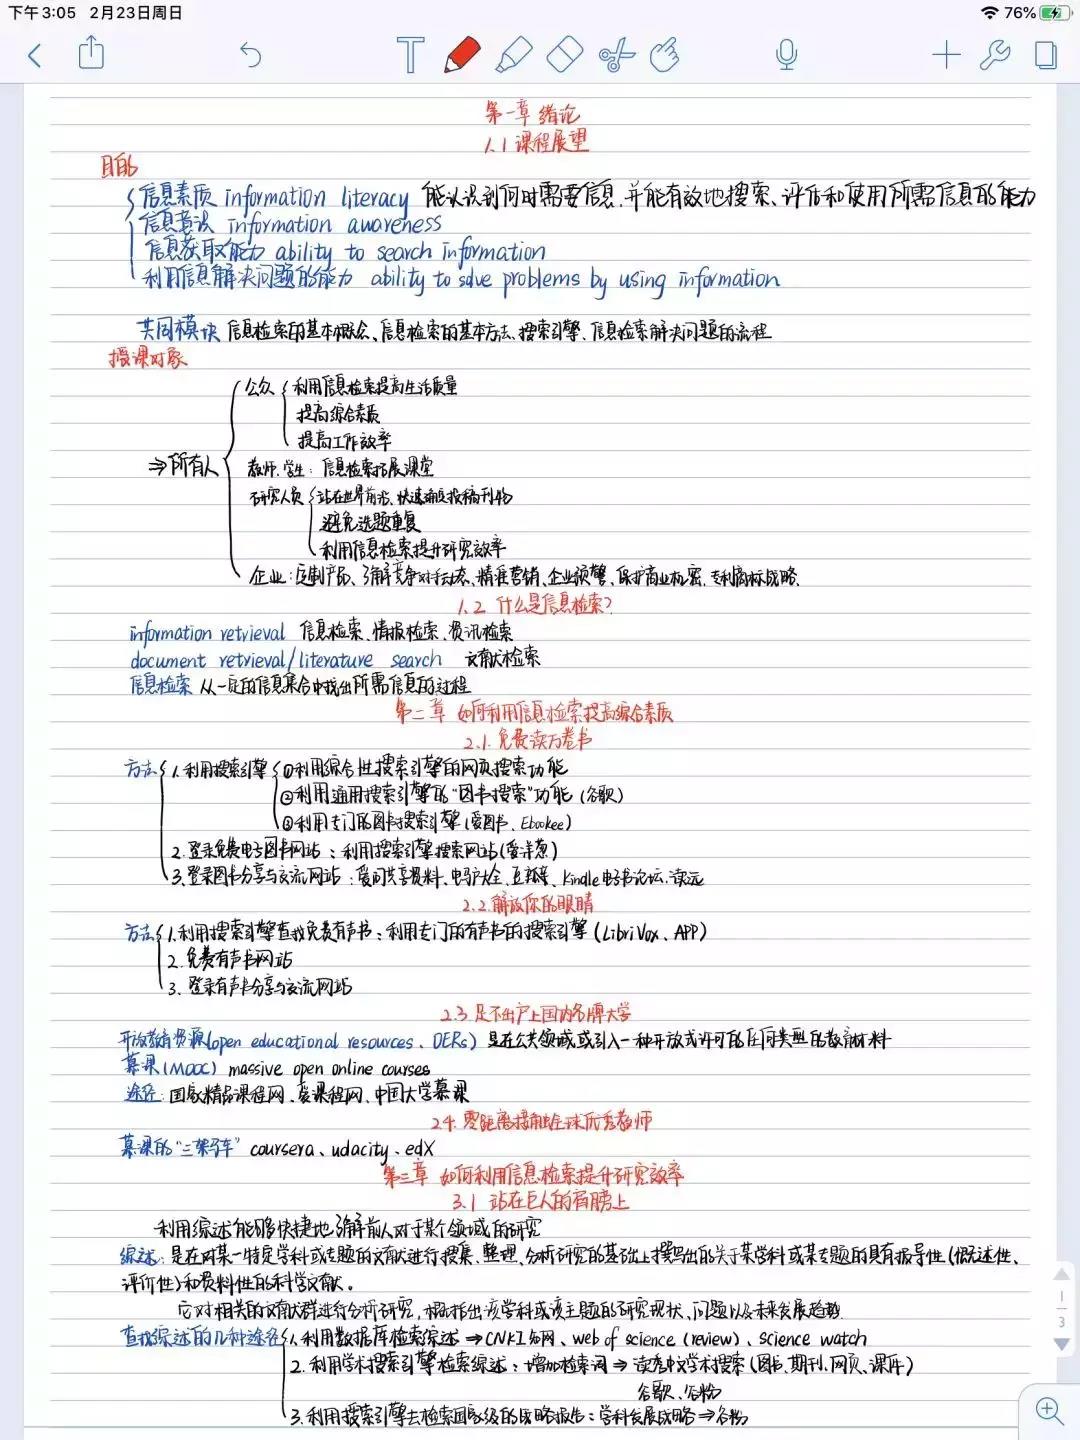 下午3:05 2月23日周日
76%
第一章 绪论
1.1 课程展望
目的
信息素质 information literacy 能认识到何时需要信息,并能有效地搜索、评估和使用所需信息的能力
信息意识 information awareness
信息获取能力 ability to search information
利用信息解决问题的能力 ability to solve problems by using information
共同模块 信息检索的基本概念、信息检索的基本方法、搜索引擎、信息检索解决问题的流程
授课对象
公众 利用信息检索提高生活质量
提高综合素质
提高工作效率
⇒所有人
教师、学生:信息检索拓展课堂
研究人员 站在世界前沿、快速投稿刊物
避免选题重复
利用信息检索提升研究效率
企业:定制产品、了解竞争对手动态、精准营销、企业预警、保护商业机密、专利商标战略.
1.2 什么是信息检索?
information retrieval 信息检索、情报检索、资讯检索
document retrieval/literature search 文献检索
信息检索 从一定的信息集合中找出所需信息的过程
第二章 如何利用信息检索提高综合素质
2.1.免费读万卷书
方法 1.利用搜索引擎 ①利用综合性搜索引擎的网页搜索功能
②利用通用搜索引擎的“图书搜索”功能(谷歌)
③利用专门的图书搜索引擎(爱图书、Ebookee)
2.登录免费电子图书网站:利用搜索引擎搜索网站(爱洋葱)
3.登录图书分享与交流网站:爱问共享资料、大全、豆瓣、Kindle电子书论坛、读元
2.2.解放你的眼睛
方法 1.利用搜索引擎查找免费有声书:利用专门的有声书的搜索引擎(LibriVox、APP)
2.免费有声书网站
3.登录有声书分享与交流网站
2.3 足不出户上国内名牌大学
开放教育资源(open educational resources、OERs) 是在公共领域或引入一种开放式许可的任何类型的教育材料
慕课(MOOC) massive open online courses
途径:国家精品课程网、爱课程网、中国大学慕课
2.4.零距离接触全球优秀教师
慕课的“三架马车” coursera、udacity、edX
第三章 如何利用信息检索提升研究效率
3.1 站在巨人的肩膀上
利用综述能够快捷地了解前人对于某个领域的研究
综述:是在对某一特定学科或专题的文献进行搜集、整理、分析研究的基础上撰写出的关于某学科或某专题的具有报导性(概述性、
评价性)和资料性的科学文献。
它对相关的文献群进行分析研究,概括出该学科或该主题的研究现状、问题以及未来发展趋势.
查找综述的几种途径 1.利用数据库检索综述⇒CNKI知网、web of science(review)、science watch
2.利用学术搜索引擎检索综述:增加检索词⇒读秀中文学术搜索(图书、期刊、网页、课件)
谷歌、谷粉
3.利用搜索引擎去检索国家级的战略报告:学科发展战略⇒谷粉
1
3